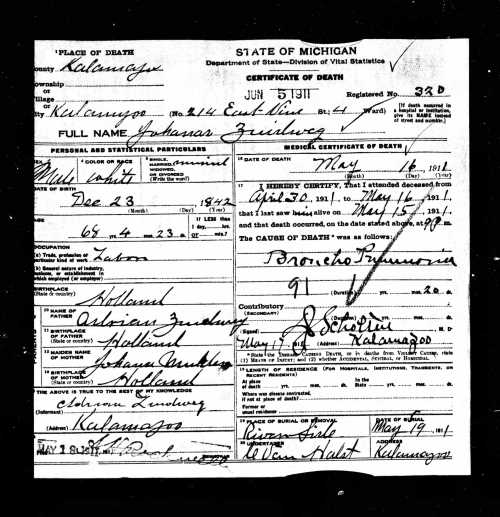 PLACE OF DEATH
STATE OF MICHIGAN
County Kalamazoo
Department of State—Division of Vital Statistics
Township or
CERTIFICATE OF DEATH
Village or
JUN 5 1911
Registered No. 320
City Kalamazoo (No. 214 East Vine St; 4 Ward)
[If death occurred in a hospital or institution, give its NAME instead of street and number.]
FULL NAME Johanas Zuidweg
PERSONAL AND STATISTICAL PARTICULARS
SEX
Male
COLOR OR RACE
White
SINGLE, MARRIED, WIDOWED, OR DIVORCED (Write the word)
DATE OF BIRTH
Dec 23 1842
(Month) (Day) (Year)
AGE
If LESS than 1 day, hrs.
68 4 23
OCCUPATION
(a) Trade, profession or particular kind of work
Labor
(b) General nature of industry, business, or establishment in which employed (or employer)
BIRTHPLACE
(State or country)
Holland
NAME OF FATHER
Adrian Zuidweg
BIRTHPLACE OF FATHER
(State or country)
Holland
MAIDEN NAME OF MOTHER
Johana
BIRTHPLACE OF MOTHER
(State or country)
Holland
THE ABOVE IS TRUE TO THE BEST OF MY KNOWLEDGE
(Informant) Adrian Zuidweg
(Address) Kalamazoo
MAY 18 1911
MEDICAL CERTIFICATE OF DEATH
DATE OF DEATH
May 16 1911
(Month) (Day) (Year)
I HEREBY CERTIFY, That I attended deceased from
April 30, 1911, to May 16, 1911,
that I last saw him alive on May 15, 1911,
and that death occurred, on the date stated above, at M
The CAUSE OF DEATH was as follows:
Broncho Pneumonia
91
(Duration) yrs. mos. 20 ds.
Contributory
(SECONDARY)
(Duration) yrs. mos. ds.
(Signed) M. D.
May 17, 1911 (Address) Kalamazoo
*State the DISEASE CAUSING DEATH, or in deaths from VIOLENT CAUSES, state (1) MEANS OF INJURY; and (2) whether ACCIDENTAL, SUICIDAL, or HOMICIDAL.
LENGTH OF RESIDENCE (For Hospitals, Institutions, Transients, or Recent Residents)
At place of death yrs. mos. ds. In the State yrs. mos. ds.
Where was disease contracted, if not at place of death?
Former or usual residence
PLACE OF BURIAL OR REMOVAL
River Side
DATE OF BURIAL
May 19, 1911
UNDERTAKER
ADDRESS
Kalamazoo